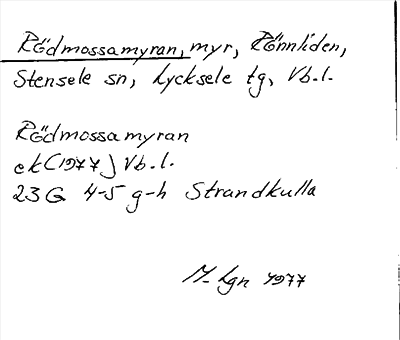 Rödmossamyran, myr, Rönnliden,
Stensele sn, Lycksele tg, Vb.l.
Rödmossamyran
ek (1977) Vb.l.
23 G 4-5 g-h Strandkulla
M-Lgn 1977